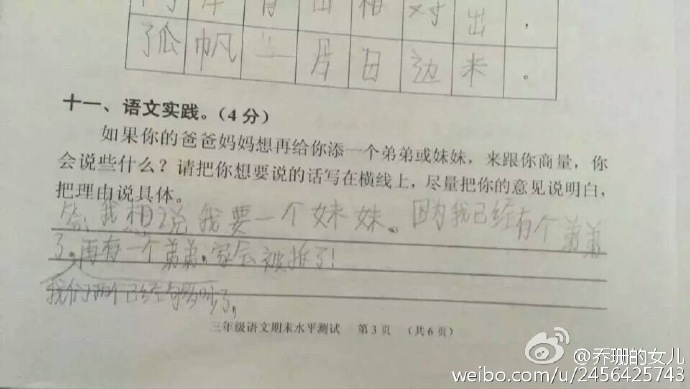 出 相 对 出 ，
孤 帆 一 片 日 边 来 。
十一、语文实践。(4分)
如果你的爸爸妈妈想再给你添一个弟弟或妹妹，来跟你商量，你
会说些什么？请把你想要说的话写在横线上，尽量把你的意见说明白，
把理由说具体。
答我想说我要一个妹妹。因为我已经有个弟弟
了。再有一个弟弟，家会被拆了！
我们两个已经够吵了，
三年级语文期末水平测试 第3页 (共6页)
@乔珊的女儿
weibo.com/u/2456425743